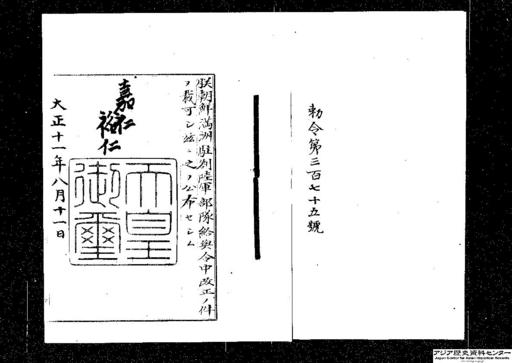 勅令第三百七十五號
朕朝鮮滿洲駐剳陸軍部隊給與令中改正ノ件
ヲ裁可シ玆ニ之ヲ公布セシム
嘉仁
裕仁
天皇御璽
大正十一年八月十一日
アジア歴史資料センター
Japan Center for Asian Historical Records